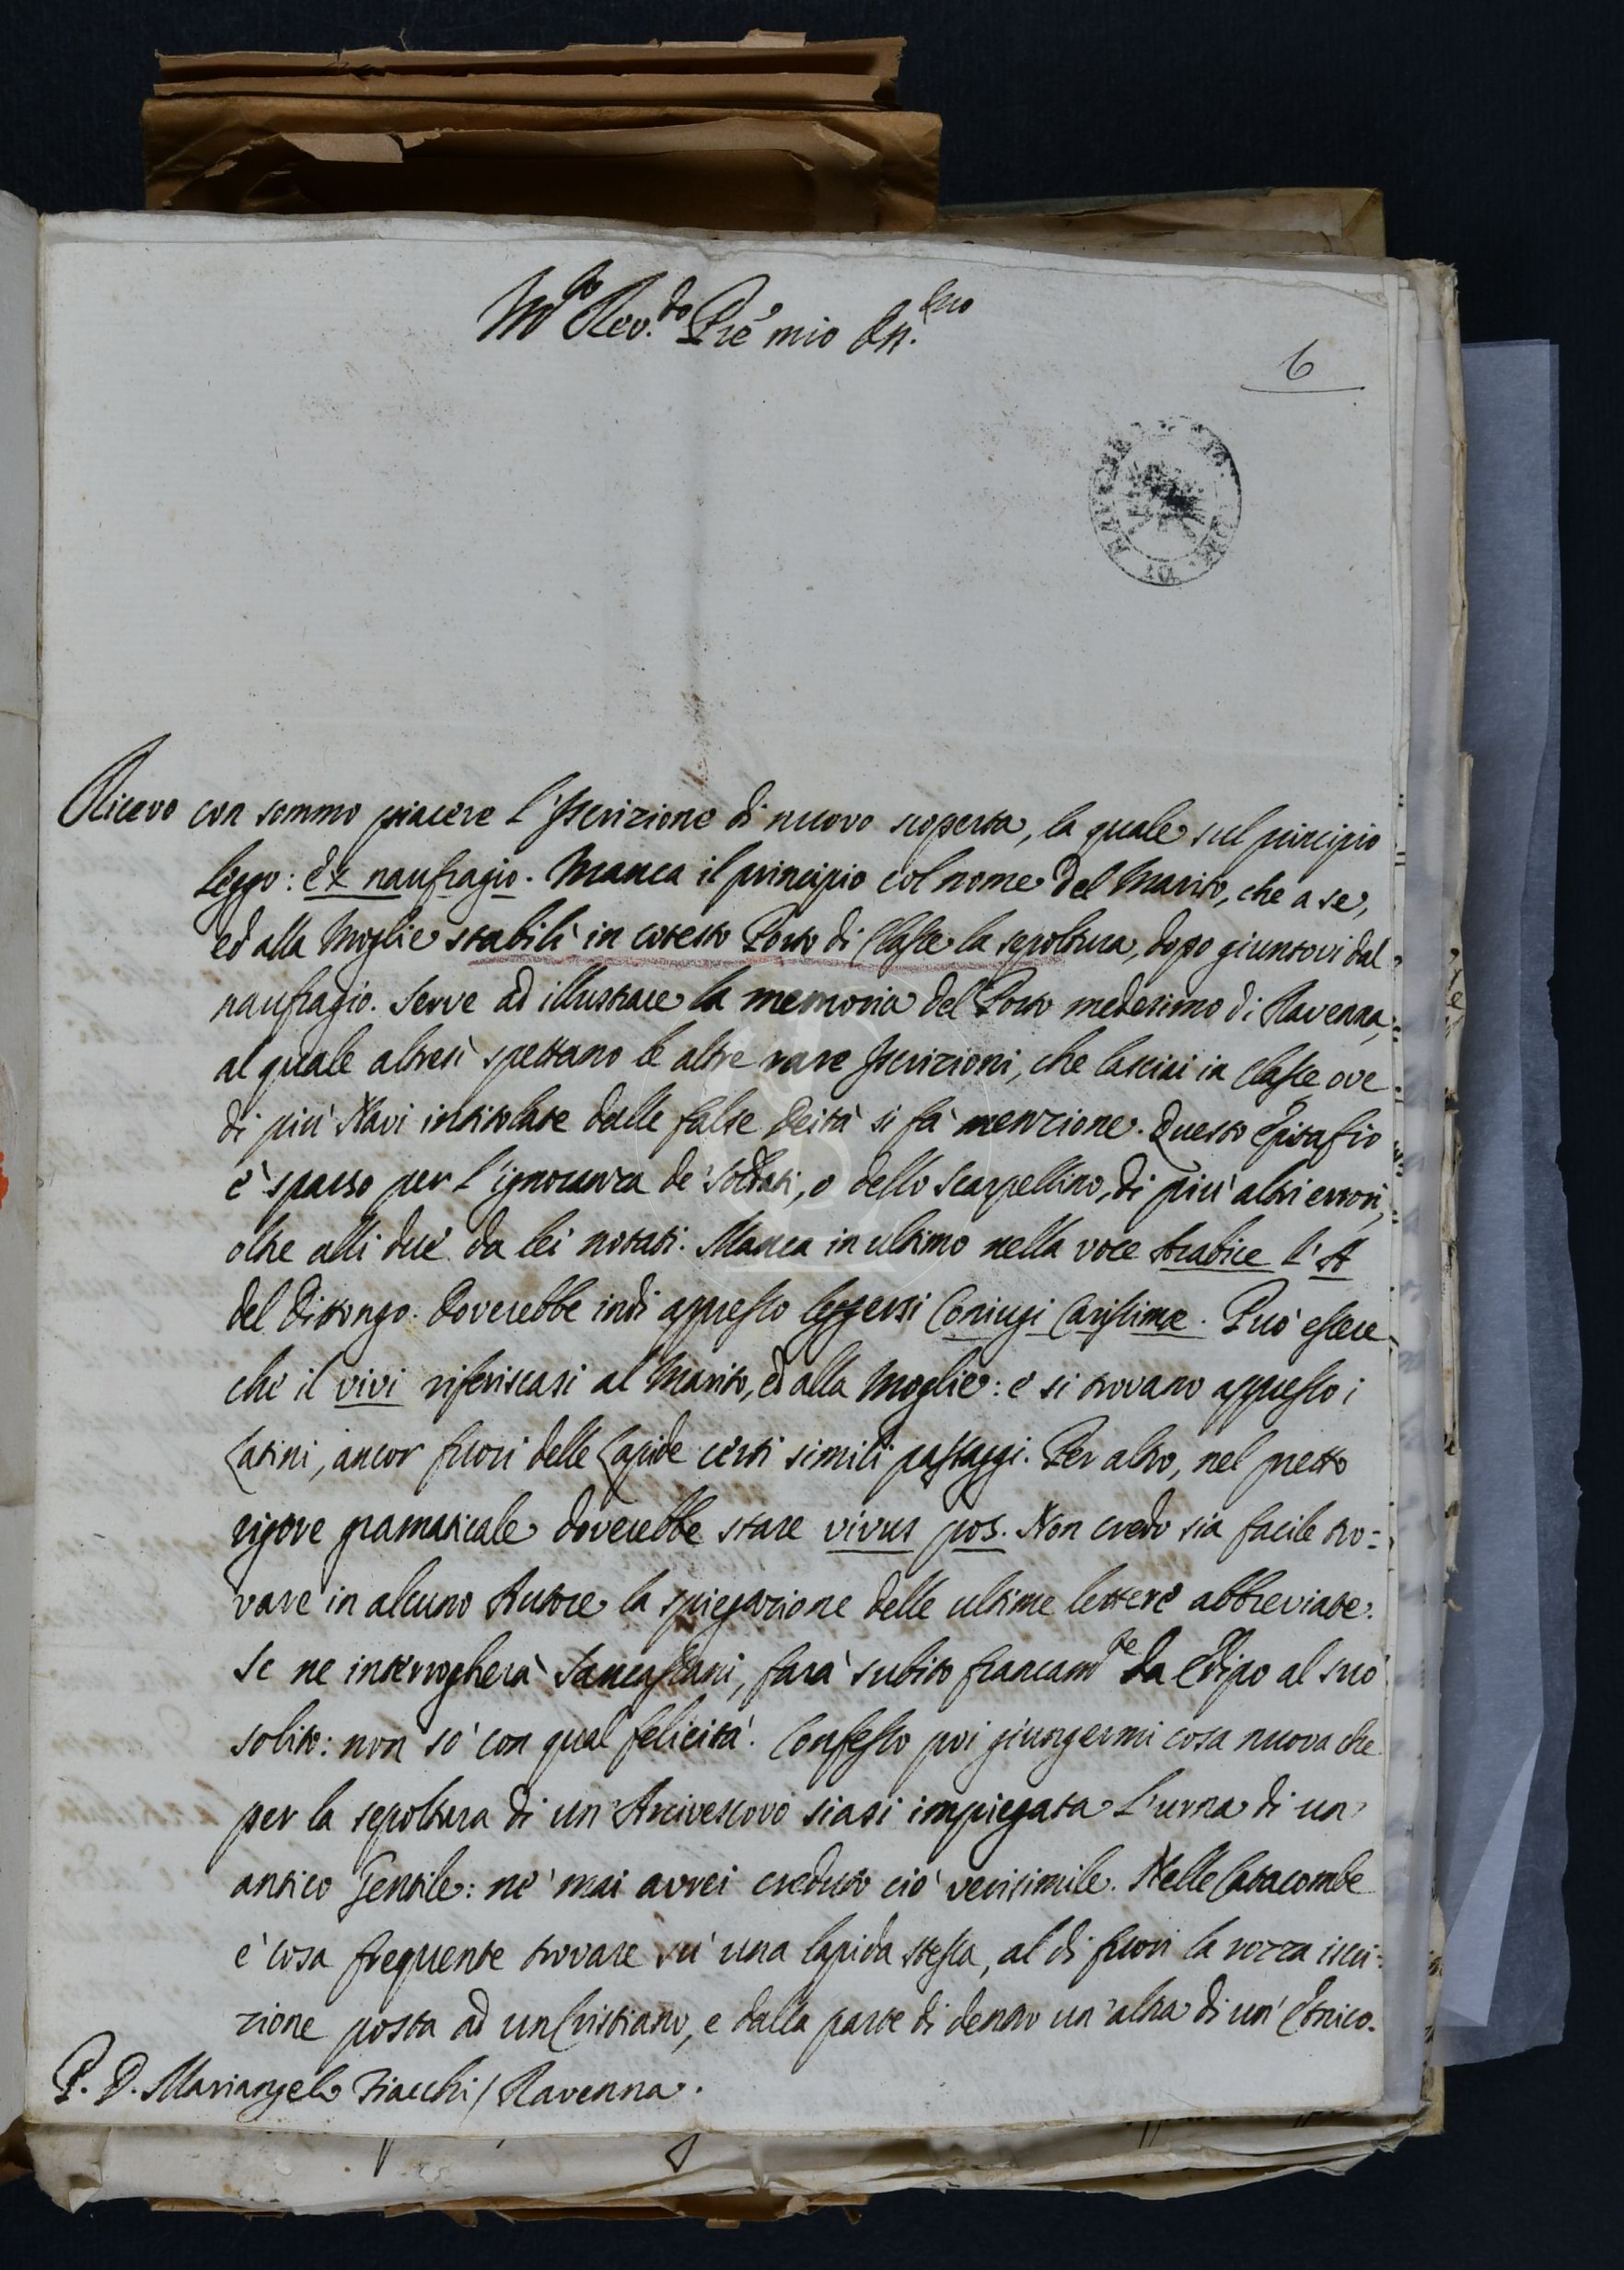 Mo Rev.do Pre mio On.
6
Ricevo con sommo piacere l'Iscrizione di nuovo scoperta, la quale sul principio
leggo: ex naufragio. Manca il principio col nome del Marito, che a se,
ed alla Moglie stabilì in cotesto Porto di Classe la sepoltura, dopo giuntovi dal
naufragio. Serve ad illustrare la memoria del Porto medesimo di Ravenna,
al quale altresì spettano le altre rare Iscrizioni, che lasciai in Classe ove
di più Navi intitolate dalle false Deità si fà menzione. Questo Epitafio
è sparso per l'ignoranza de' Soldati, o dello Scarpellino, di più altri errori,
oltre alli due da lei notati. Manca in ultimo nella voce Arabice l'A
del Dittongo. Doverebbe indi appresso leggersi Coniugi Carissimæ. Può essere
che il vivi riferiscasi al Marito, ed alla Moglie: e si trovano appresso i
Latini, ancor fuori delle Lapide certi simili passaggi. Per altro, nel pretto
rigore gramaticale doverebbe stare vivus pos. Non credo sia facile tro=
vare in alcuno Autore la spiegazione delle ultime lettere abbreviate.
Se ne interrogherà Sancassani, farà subito francamte da Edipo al suo
solito: non sò con qual felicità. Confesso poi giungermi cosa nuova che
per la sepoltura di un'Arcivescovo siasi impiegata l'urna di un'
antico Gentile: nè mai avrei creduto ciò verisimile. Nelle Catacombe
è cosa frequente trovare sù una lapida stessa, al di fuori la rozza iscri=
zione posta ad un Cristiano, e dalla parte di dentro un'altra di un'Etnico.
P. D. Mariangelo Fiacchi / Ravenna.